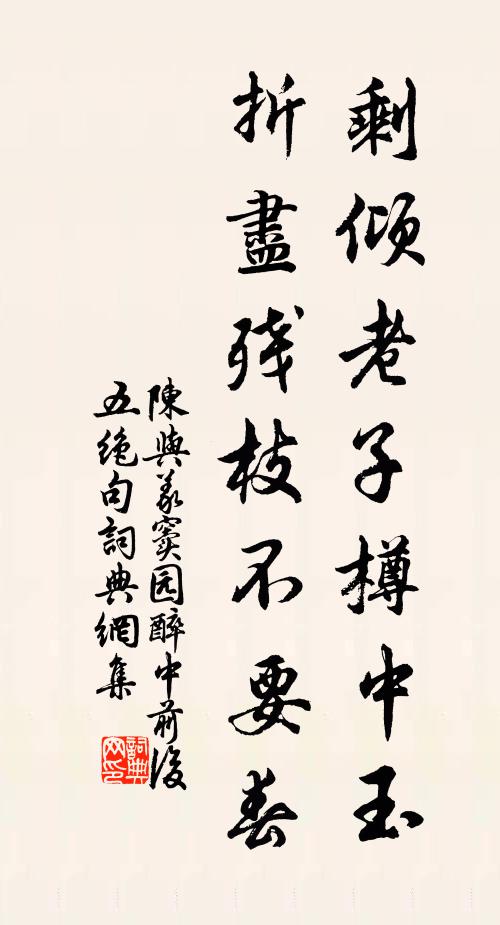 剩倾老子樽中玉
折盡残枝不要春
陳與義窦园醉中前後
五绝句詞典網集
詞典網印